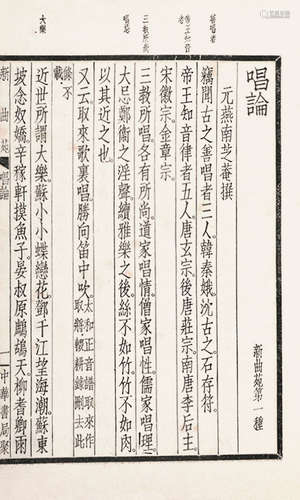 新曲苑第一種
唱論
元燕南芝菴撰
善唱者
竊聞古之善唱者三人韓秦娥沈古之石存符
帝王知音者
帝王知音律者五人唐玄宗後唐莊宗南唐李后主
宋徽宗金章宗
三教所尚
三教所唱各有所尚道家唱情僧家唱性儒家唱理
唱忌
大忌鄭衛之淫聲續雅樂之後絲不如竹竹不如肉
以其近之也
又云取來歌裏唱勝向笛中吹太和正音譜取來作取將輟耕錄刪去此
條不載
大樂
近世所謂大樂蘇小小蝶戀花鄧千江望海潮蘇東
坡念奴嬌辛稼軒摸魚子晏叔原鷓鴣天柳耆卿雨
新曲苑 唱論 一 中華書局聚